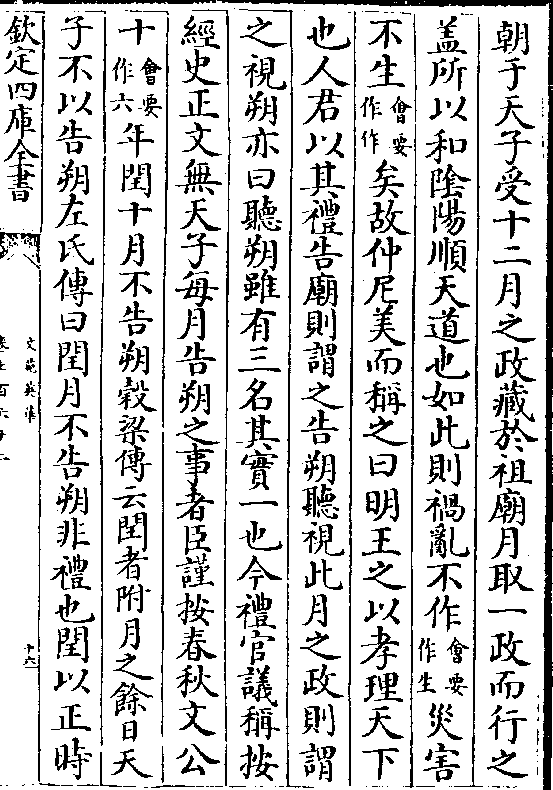 朝于天子受十二月之政藏於祖廟月取一政而行之
盖所以和陰陽順天道也如此則禍亂不作會要作生災害
不生會要作作矣故仲尼美而稱之曰明王之以孝理天下
也人君以其禮告廟則謂之告朔聽視此月之政則謂
之視朔亦曰聽朔雖有三名其實一也今禮官議稱按
經史正文無天子每月告朔之事者臣謹按春秋文公
十會要作六年閏十月不告朔穀梁傳云閏者附月之餘日天
子不以告朔左氏傳曰閏月不告朔非禮也閏以正時
欽定四庫全書
文苑英華
十六